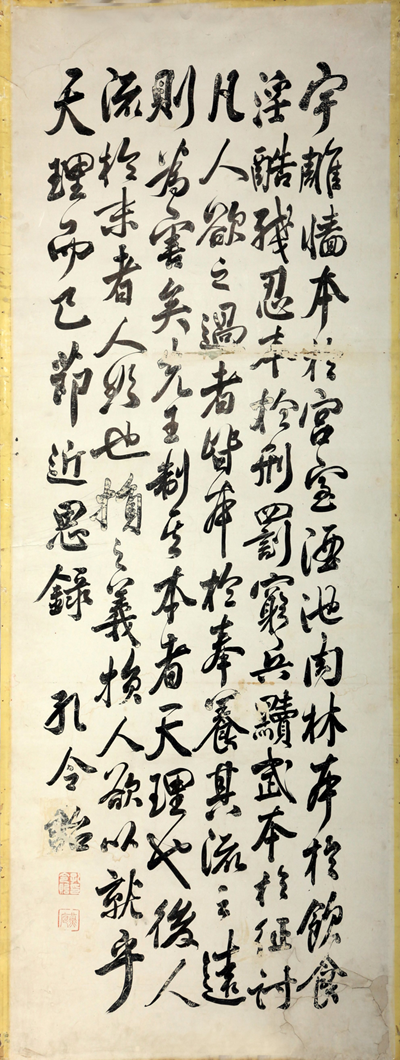 宇雕墻本於宮室酒池肉林本於飲食
淫酷殘忍本於刑罰窮兵黷武本於征討
凡人欲之過者皆本於奉養其流之遠
則為害矣先王制其本者天理也後人
流於末者人欲也損之義損人欲以就乎
天理而已節近思錄 孔令貽